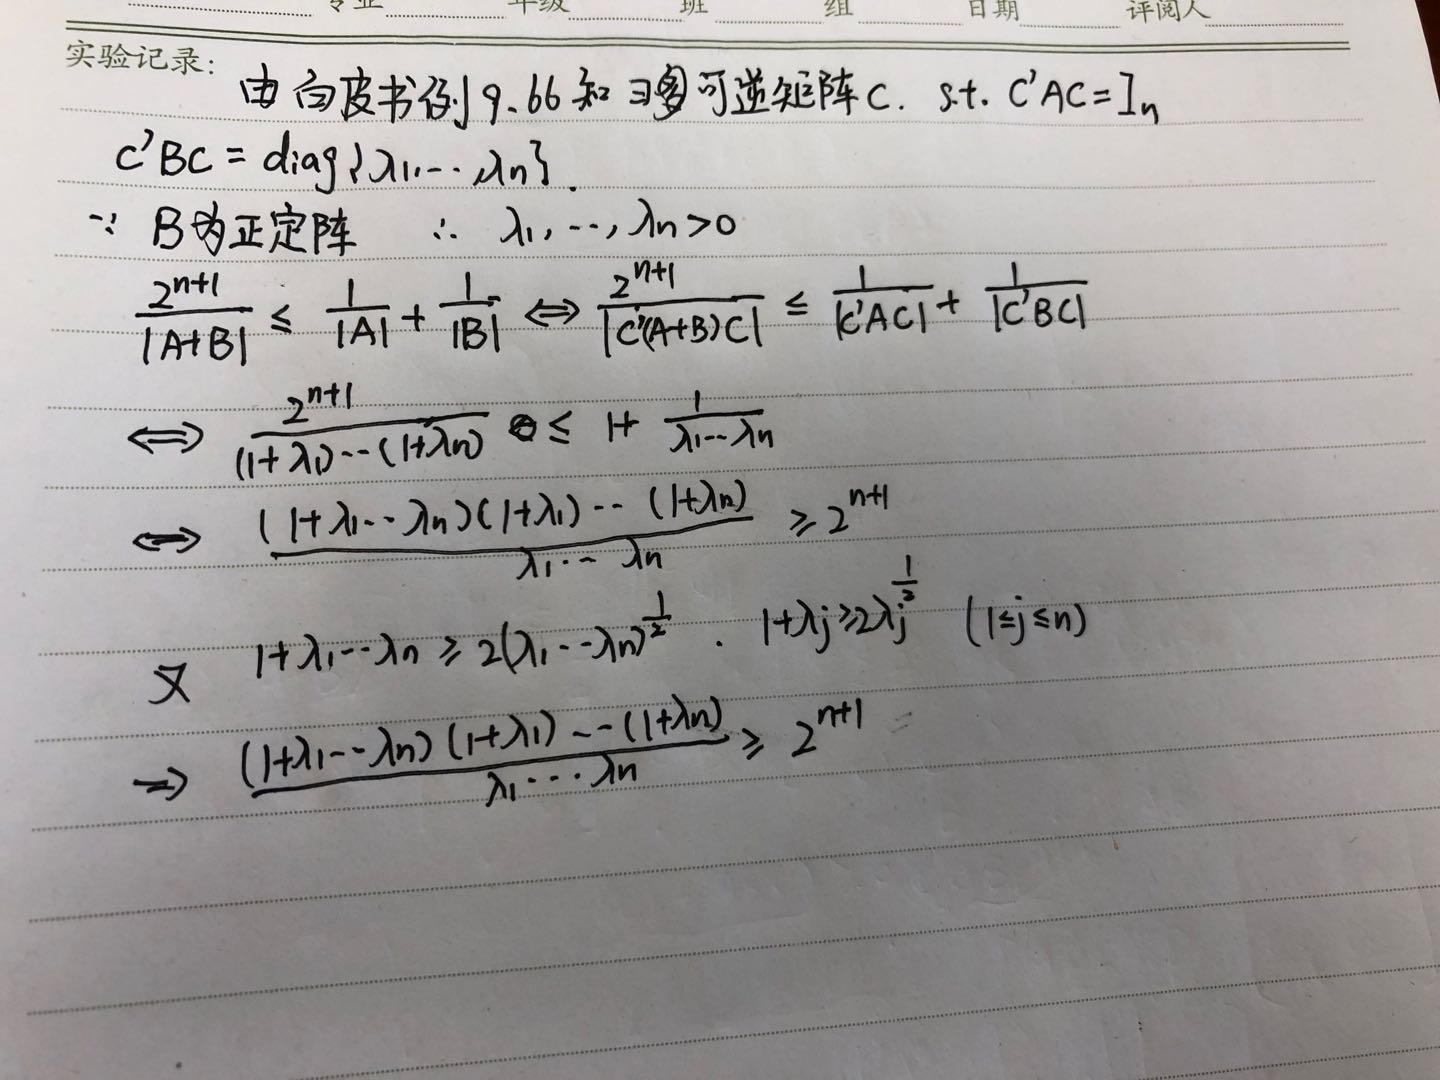 专业 年级 班 组 日期 评阅人
实验记录:
由白皮书例9.66知 ∃可逆矩阵C. s.t. C'AC=I_n
C'BC = diag{λ₁,…,λn}.
∵ B为正定阵 ∴ λ₁,…,λn>0
2^{n+1}/|A+B| ≤ 1/|A| + 1/|B| ⟺ 2^{n+1}/|C'(A+B)C| ≤ 1/|C'AC| + 1/|C'BC|
⟺ 2^{n+1}/((1+λ₁)…(1+λn)) ≤ 1+ 1/(λ₁…λn)
⟺ (1+λ₁…λn)(1+λ₁)…(1+λn)/(λ₁…λn) ≥ 2^{n+1}
又 1+λ₁…λn ≥ 2(λ₁…λn)^{1/2} . 1+λj≥2λj^{1/2} (1≤j≤n)
⇒ (1+λ₁…λn)(1+λ₁)…(1+λn)/(λ₁…λn) ≥ 2^{n+1}